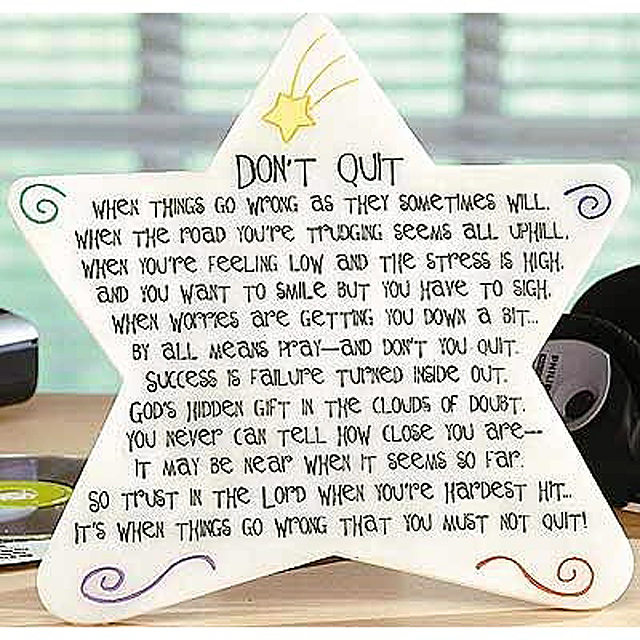 DON'T QUIT
WHEN THINGS GO WRONG AS THEY SOMETIMES WILL.
WHEN THE ROAD YOU'RE TRUDGING SEEMS ALL UPHILL,
WHEN YOU'RE FEELING LOW AND THE STRESS IS HIGH,
AND YOU WANT TO SMILE BUT YOU HAVE TO SIGH,
WHEN WORRIES ARE GETTING YOU DOWN A BIT...
BY ALL MEANS PRAY—AND DON'T YOU QUIT.
SUCCESS IS FAILURE TURNED INSIDE OUT.
GOD'S HIDDEN GIFT IN THE CLOUDS OF DOUBT.
YOU NEVER CAN TELL HOW CLOSE YOU ARE—
IT MAY BE NEAR WHEN IT SEEMS SO FAR.
SO TRUST IN THE LORD WHEN YOU'RE HARDEST HIT...
IT'S WHEN THINGS GO WRONG THAT YOU MUST NOT QUIT!
PHILIPS